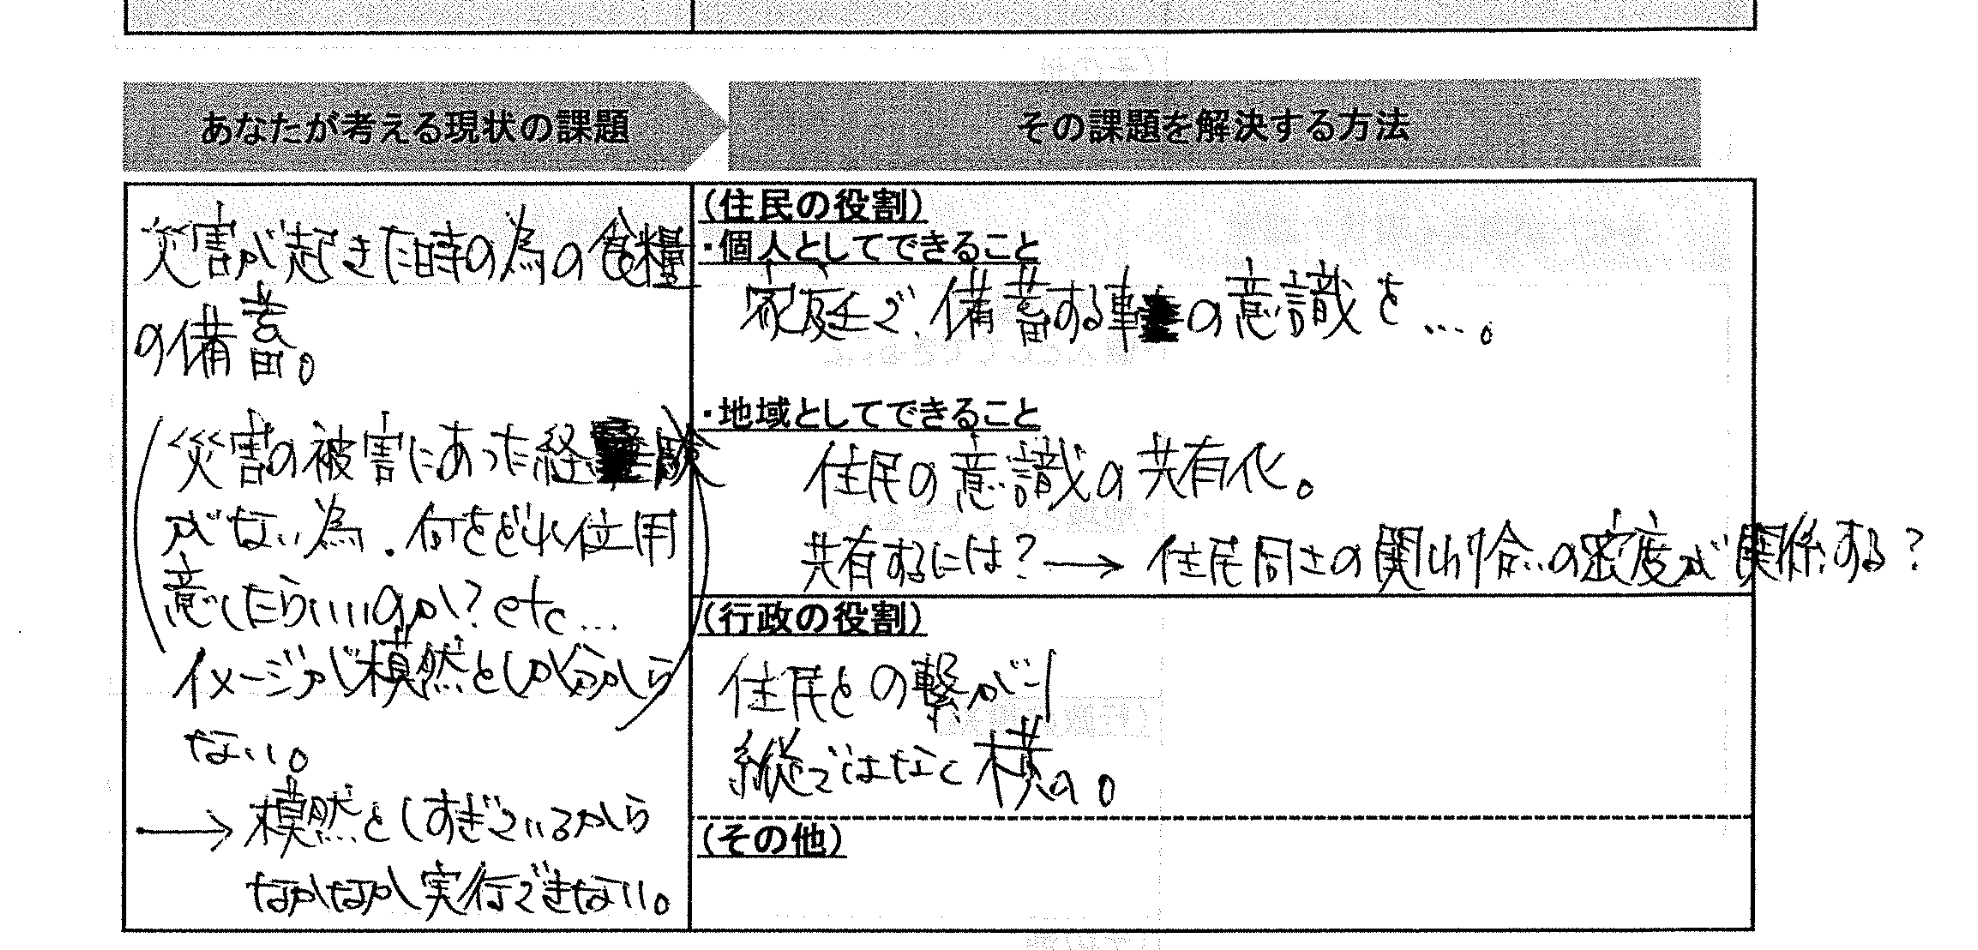 あなたが考える現状の課題
その課題を解決する方法
災害が起きた時の為の食糧
の備蓄。
(災害の被害にあった経験
がない為、何をどれ位用
意したらいいのか?etc...
イメージが模然としか分から
ない。)
→模然としすぎているから
なかなか実行できない。
(住民の役割)
・個人としてできること
家庭で、備蓄する事の意識を…。
・地域としてできること
住民の意識の共有化。
共有するには?→住民同士の関わり合いの密度が関係する?
(行政の役割)
住民との繋がり
縦ではなく横の。
(その他)